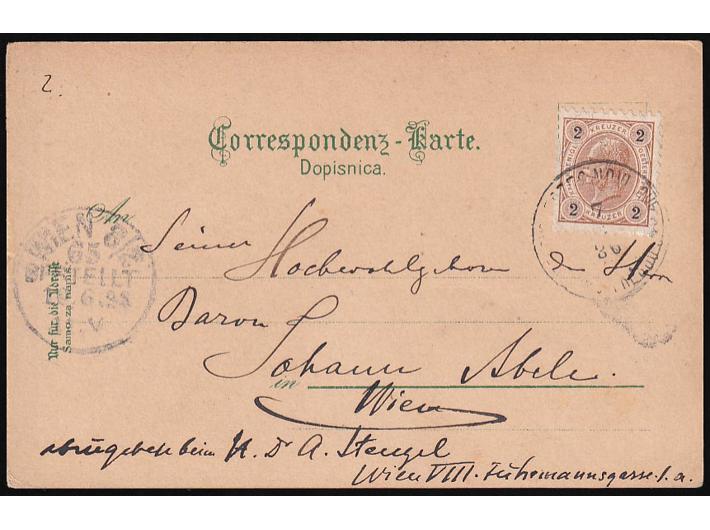 2.
Correspondenz-Karte.
Dopisnica.
An
Seiner
Hochwohlgeboren den Herrn
Baron
Johann Abele.
in Wien
abzugeben beim H. Dr A. Stengel
Wien VIII. Fuhrmannsgasse 1.a.
Nur für die Adresse
Samo za naslov.
WIEN 8/2
65
BESTELLT
V
2 KREUZER 2
2 KREUZER 2